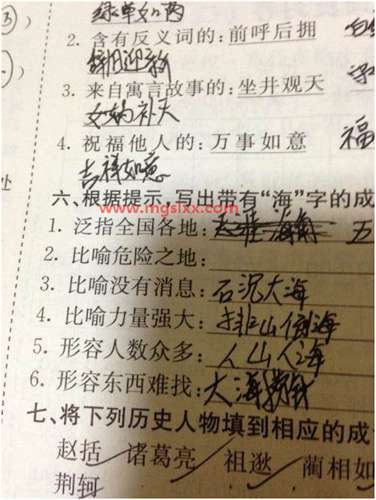 绿草如茵
2. 含有反义词的：前呼后拥
辞旧迎新
3. 来自寓言故事的：坐井观天
女娲补天
4. 祝福他人的：万事如意 福
吉祥如意
六、根据提示，写出带有“海”字的成
www.mgslxx.com
1. 泛指全国各地： 五
2. 比喻危险之地：
3. 比喻没有消息：石沉大海
4. 比喻力量强大：排山倒海
5. 形容人数众多：人山人海
6. 形容东西难找：大海捞针
七、将下列历史人物填到相应的成
赵括 诸葛亮 祖逖 蔺相如
荆轲